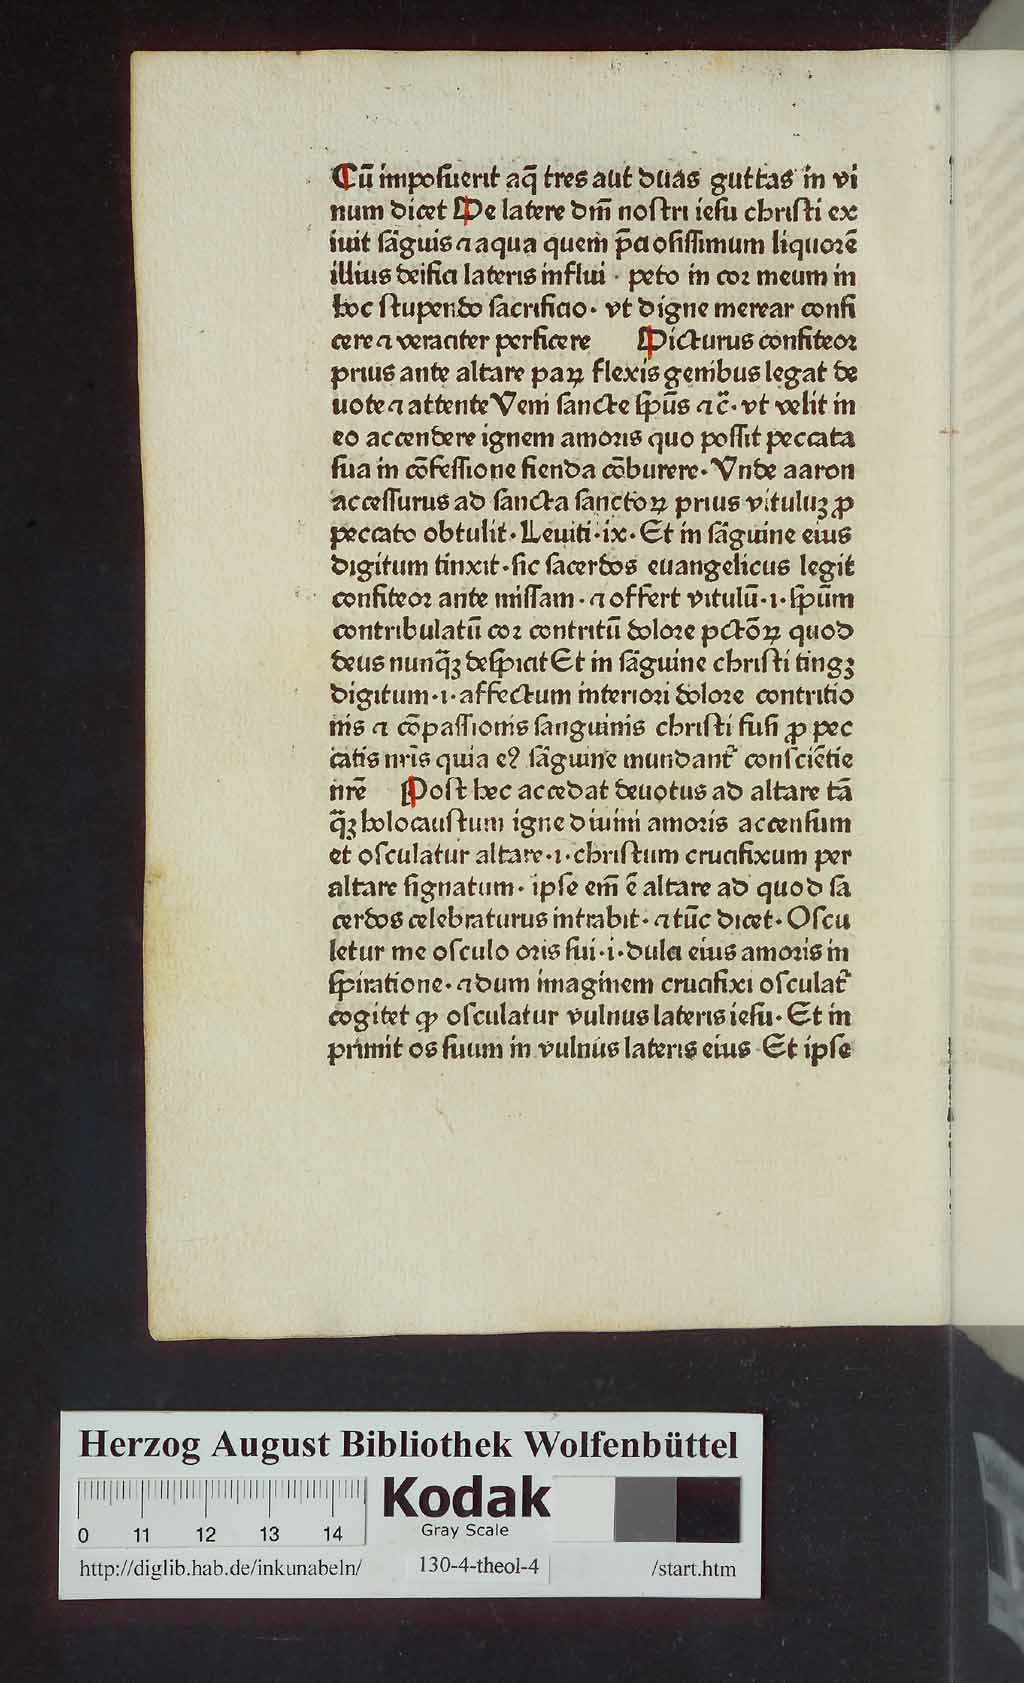 Cū imposuerit aq̄ tres aut duas guttas in vi
num dicet De latere dn̄i nostri iesu christi ex
iuit sāguis ⁊ aqua quem p̄ciosissimum liquorē
illius deifici lateris influi · peto in cor meum in
hoc stupendo sacrificio · vt digne merear confi
cere ⁊ veraciter perficere Dicturus confiteor
prius ante altare paꝝ flexis genibus legat de
uote ⁊ attente Veni sancte sp̄us ⁊ c̄ · vt velit in
eo accendere ignem amoris quo possit peccata
sua in cōfessione fienda cōburere · Vnde aaron
accessurus ad sancta sanctoꝝ prius vituluꝫ ꝓ
peccato obtulit · Leuiti · ix · Et in sāguine eius
digitum tinxit · sic sacerdos euangelicus legit
confiteor ante missam · ⁊ offert vitulū · i · sp̄um
contribulatū cor contritū dolore pctōꝝ quod
deus nunq̄ꝫ despicit Et in sāguine christi tingꝫ
digitum · i · affectum interiori dolore contritio
nis ⁊ cōpassionis sanguinis christi fusi ꝓ pec
catis nr̄is quia eꝰ sāguine mundant᷑ consciētie
nrē Post hec accedat deuotus ad altare tā
q̄ꝫ holocaustum igne diuini amoris accensum
et osculatur altare · i · christum crucifixum per
altare signatum · ipse em̄ ē altare ad quod sa
cerdos celebraturus intrabit · ⁊ tūc dicet · Oscu
letur me osculo oris sui · i · dulci eius amoris in
spiratione · ⁊ dum imaginem crucifixi osculat᷑
cogitet ꝙ osculatur vulnus lateris iesu · Et in
primit os suum in vulnus lateris eius Et ipse
Herzog August Bibliothek Wolfenbüttel
0 11 12 13 14
Kodak
Gray Scale
http://diglib.hab.de/inkunabeln/ 130-4-theol-4 /start.htm